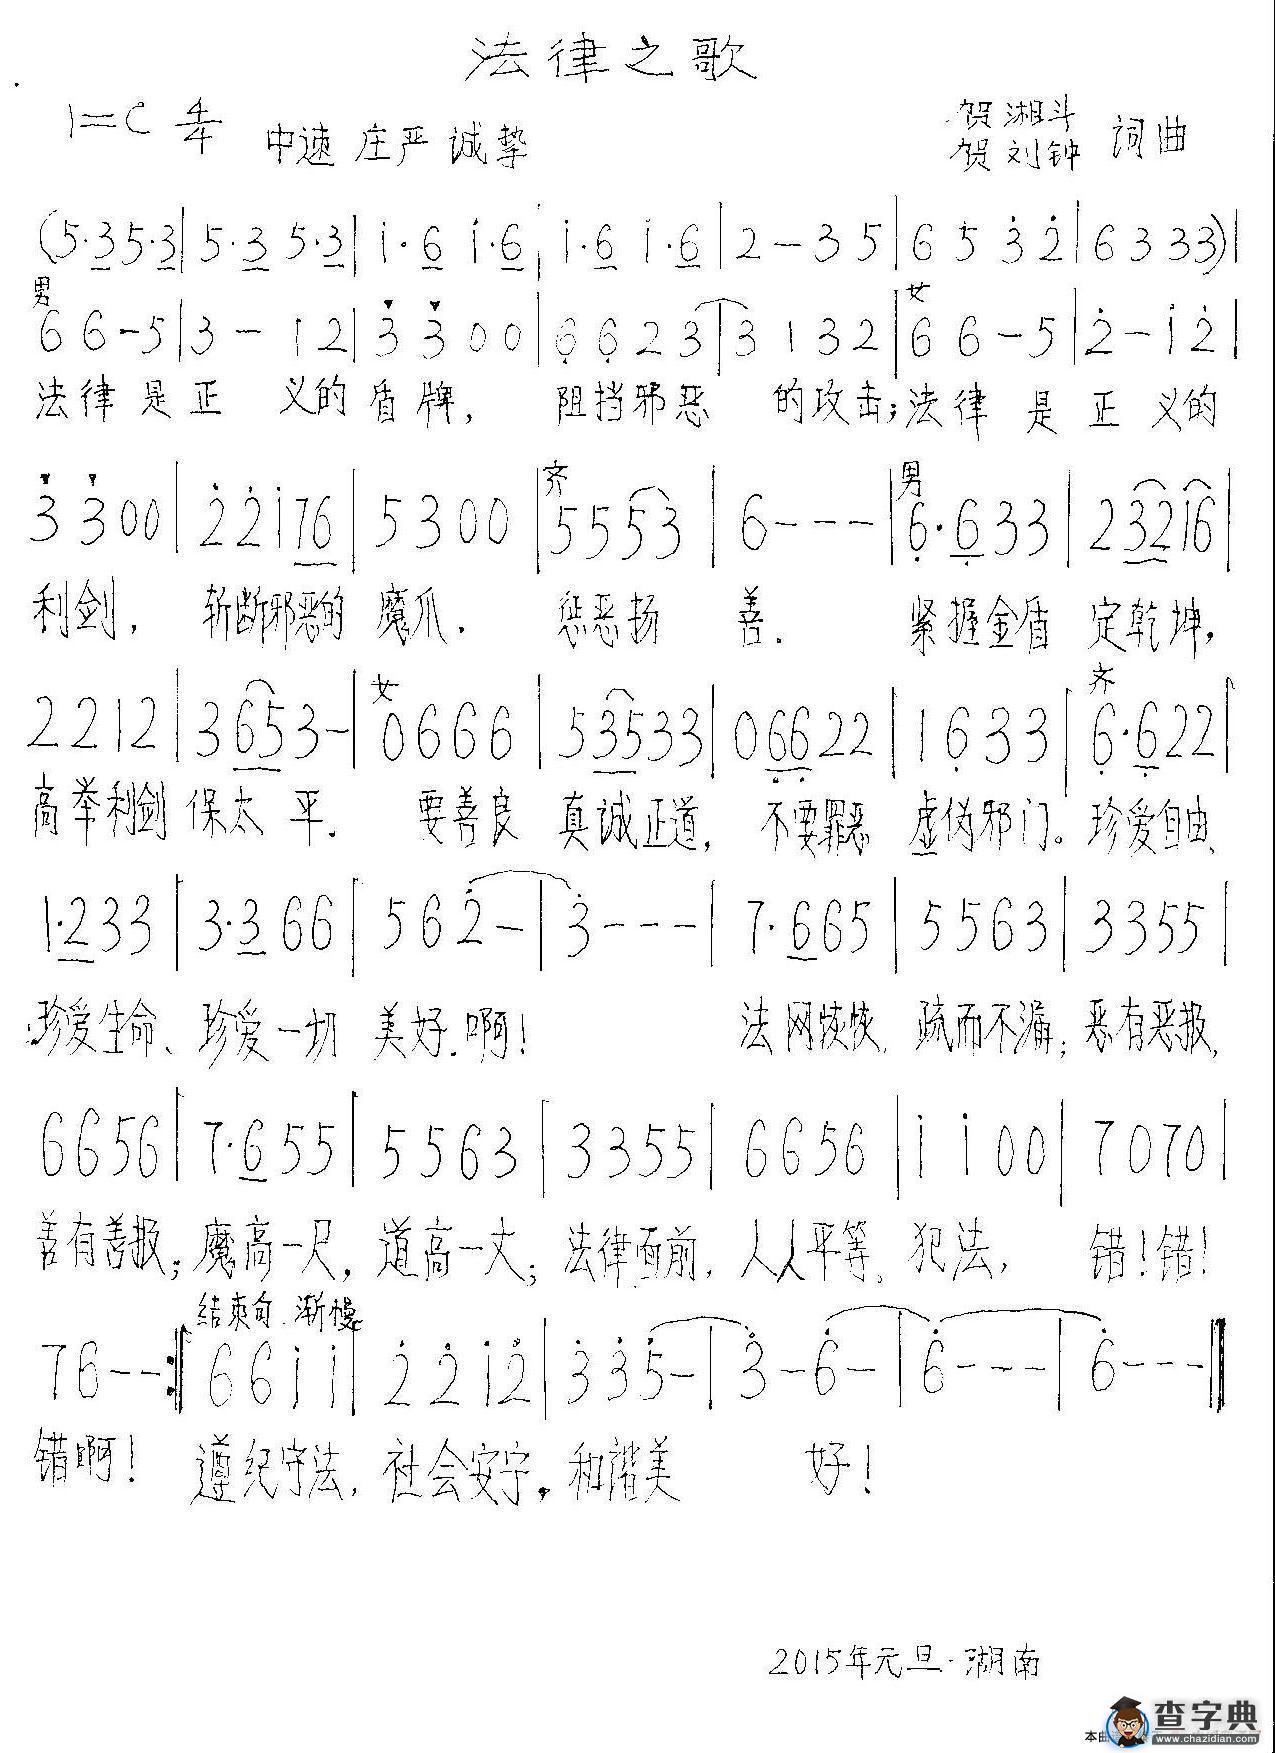 法律之歌
1=C 4/4 中速 庄严 诚挚
贺湘斗
贺刘钟 词曲
(5·3 5·3 | 5·3 5·3 | i·6 i·6 | i·6 i·6 | 2 - 3 5 | 6 5 3 2 | 6 3 3 3) |
男 女
6 6 - 5 | 3 - 1 2 | 3 3 0 0 | 6 6 2 3 | 3 1 3 2 | 6 6 - 5 | 2 - i 2 |
法律是正 义的盾牌, 阻挡邪恶 的攻击;法律 是正 义的
齐 男
3 3 0 0 | 2 2 i 7 6 | 5 3 0 0 | 5 5 5 3 | 6 - - - | 6·6 3 3 | 2 3 2 1 6 |
利剑, 斩断邪恶的 魔爪. 惩恶扬 善. 紧握金盾 定乾坤,
女 齐
2 2 1 2 | 3 6 5 3 - | 0 6 6 6 | 5 3 5 3 3 | 0 6 6 2 2 | 1 6 3 3 | 6·6 2 2 |
高举利剑 保太 平. 要善良 真诚正道, 不要罪恶 虚伪邪门。珍爱自由、
1·2 3 3 | 3·3 6 6 | 5 6 2 - | 3 - - - | 7·6 6 5 | 5 5 6 3 | 3 3 5 5 |
珍爱生命、珍爱一切 美好.啊! 法网恢恢, 疏而不漏; 恶有恶报,
6 6 5 6 | 7·6 5 5 | 5 5 6 3 | 3 3 5 5 | 6 6 5 6 | i i 0 0 | 7 0 7 0 |
善有善报; 魔高一尺, 道高一丈; 法律面前, 人人平等. 犯法, 错!错!
结束句.渐慢
7 6 - - :‖ 6 6 i i | 2 2 i 2 | 3 3 5 - | 3 - 6 - | 6 - - - | 6 - - - ‖
错啊! 遵纪守法, 社会安宁. 和谐美 好!
2015年元旦·湖南
查字典
www.chazidian.com
本曲